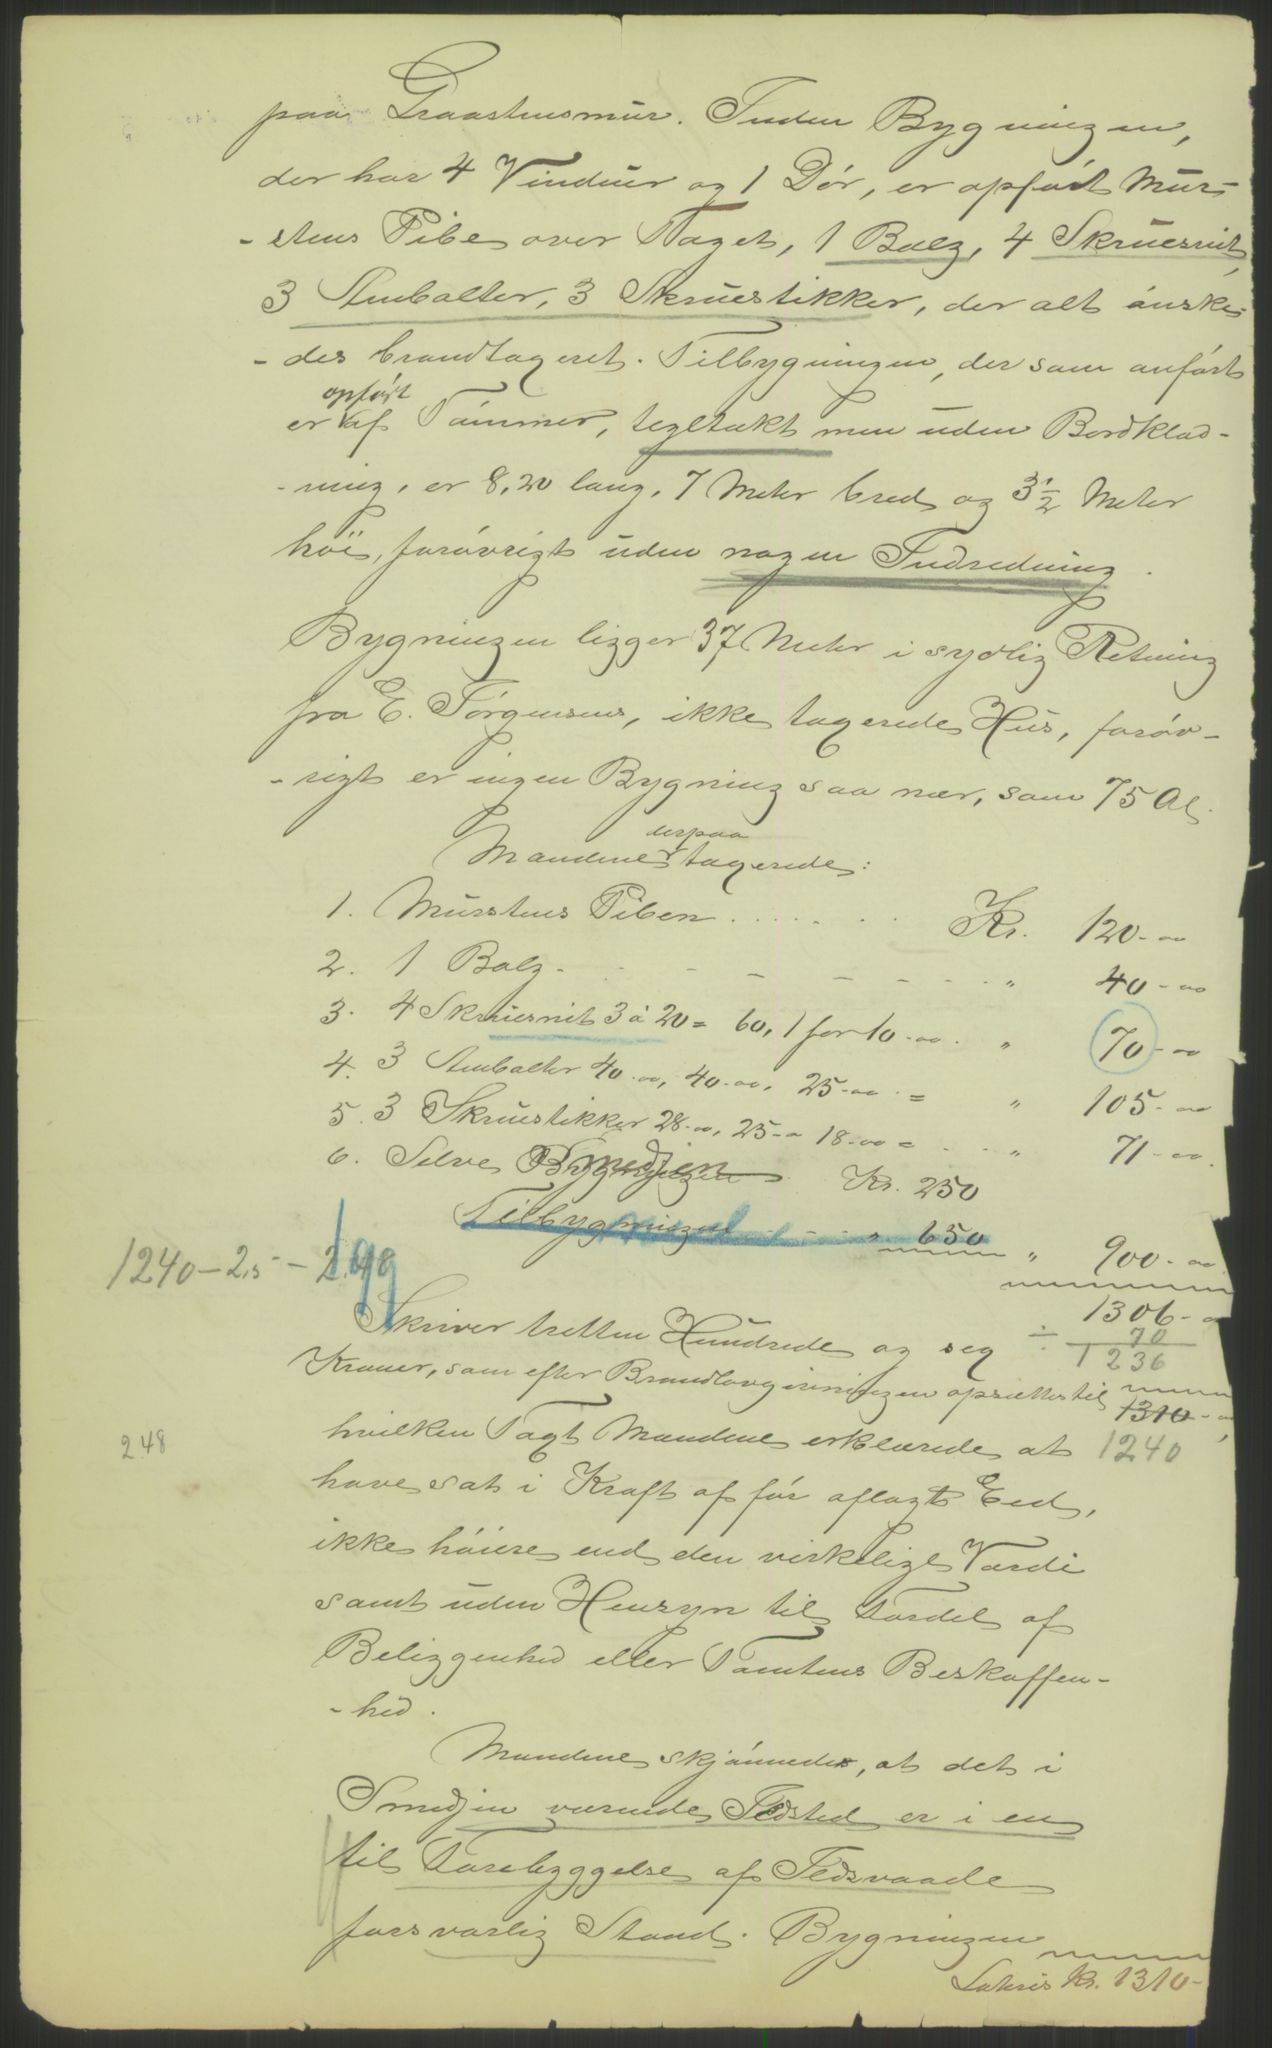 paa Graastensmur. Inden Bygningen,
der har 4 Vinduer og 1 Dör, er opfört Mur-
-stens Pibe over Taget, 1 Balg, 4 Skruesnit,
3 Ambolter, 3 Skruestikker, der alt önske-
-des brandtageret. Tilbygningen, der som anfört
er opfört af Tömmer, tegltækt men uden Bordklæd-
-ning, er 8,20 lang, 7 Meter bred og 3 1/2 Meter
höi, forövrigt uden nogen Indredning.
Bygningen ligger 37 Meter i sydlig Retning
fra E. Jörgensens, ikke tagerede Hus, foröv-
-rigt er ingen Bygning saa nær, som 75 Al.
Mændene derpaa tagerede:
1. Murstens Piben . . . . . . Kr. 120-00
2. 1 Balg - - - - - - - " 40-00
3. 4 Skruesnit 3 á 20 = 60, 1 for 10-00. " 70-00
4. 3 Ambolter 40-00, 40-00, 25-00 = " 105-00
5. 3 Skruestikker 28-00, 25-00 18-00 = . . " 71-00.
6. Selve Bygningen Smedjen Kr. 250
Tilbygningen - - - " 650 " 900-00
1240-2,5-2.48
199
1306-00
÷ 70
1236
Skriver tretten Hundrede og sex
Kroner, som efter Brandlovgivningen oprettes til 1310-00,
hvilken Taxt Mændene erklærede at 1240
248
have sat i Kraft af för aflagt Eed,
ikke höiere end den virkelige Værdi
samt uden Hensyn til Fordel af
Beliggenhed eller Tomtens Beskaffen-
-hed.
Mændene skjönnede, at det i
Smedjen værende Ildsted er i en
til Forebyggelse af Ildsvaade
forsvarlig Stand. Bygningen
Lateris Kr. 1310-